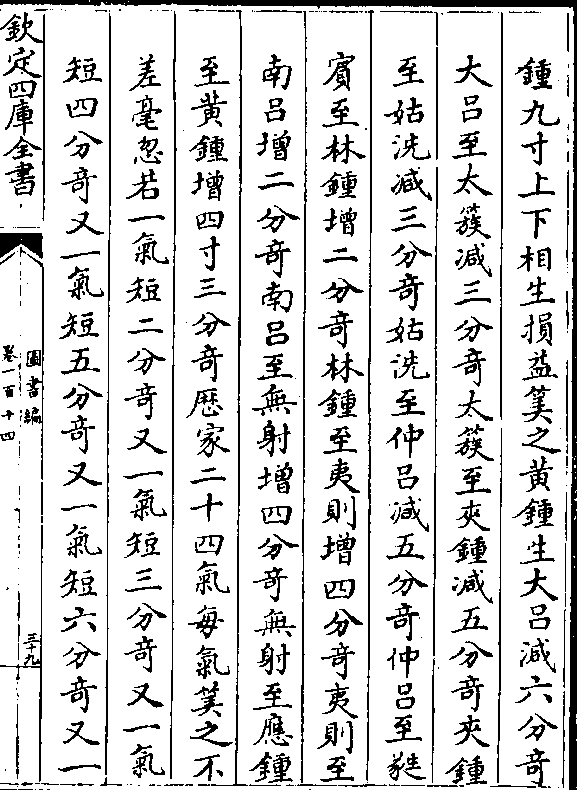 鍾九寸上下相生損益筭之黃鍾生大吕減六分竒
大吕至太簇減三分竒太簇至夾鍾減五分竒夾鍾
至姑洗减三分竒姑洗至仲吕減五分竒仲吕至蕤
賔至林鍾增二分竒林鍾至夷則增四分竒夷則至
南吕增二分竒南吕至無射增四分竒無射至應鍾
至黃鍾增四寸三分竒厯家二十四氣每氣筭之不
差毫忽若一氣短二分竒又一氣短三分竒又一氣
短四分竒又一氣短五分竒又一氣短六分竒又一
欽定四庫全書
圖書編
卷一百十四
三十九